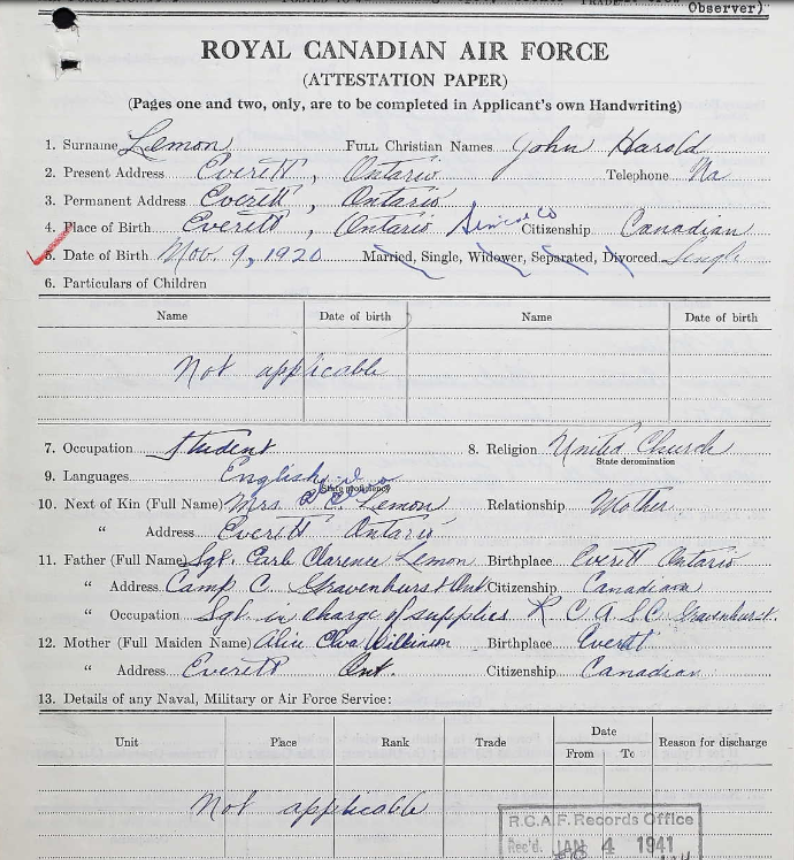 Observer)
ROYAL CANADIAN AIR FORCE
(ATTESTATION PAPER)
(Pages one and two, only, are to be completed in Applicant's own Handwriting)
1. Surname Lemon FULL Christian Names John Harold
2. Present Address Everett, Ontario Telephone No
3. Permanent Address Everett, Ontario
4. Place of Birth Everett, Ontario Simcoe Co Citizenship Canadian
5. Date of Birth Nov. 9, 1920 Married, Single, Widower, Separated, Divorced Single
6. Particulars of Children
Name Date of birth Name Date of birth
Not applicable
7. Occupation Student 8. Religion United Church
State denomination
9. Languages English
State proficiency
10. Next of Kin (Full Name) Mrs. C. Lemon Relationship Mother
" Address Everett Ontario
11. Father (Full Name) Sgt. Earl Clarence Lemon Birthplace Everett Ontario
" Address Camp C. Gravenhurst Ont. Citizenship Canadian
" Occupation Sgt. in charge of supplies R. C. A. S. C. Gravenhurst.
12. Mother (Full Maiden Name) Alice Elva Wilkinson Birthplace Everett
" Address Everett Ont. Citizenship Canadian
13. Details of any Naval, Military or Air Force Service:
Unit Place Rank Trade Date Reason for discharge
From To
Not applicable
R.C.A.F. Records Office
Rec'd. JAN 4 1941